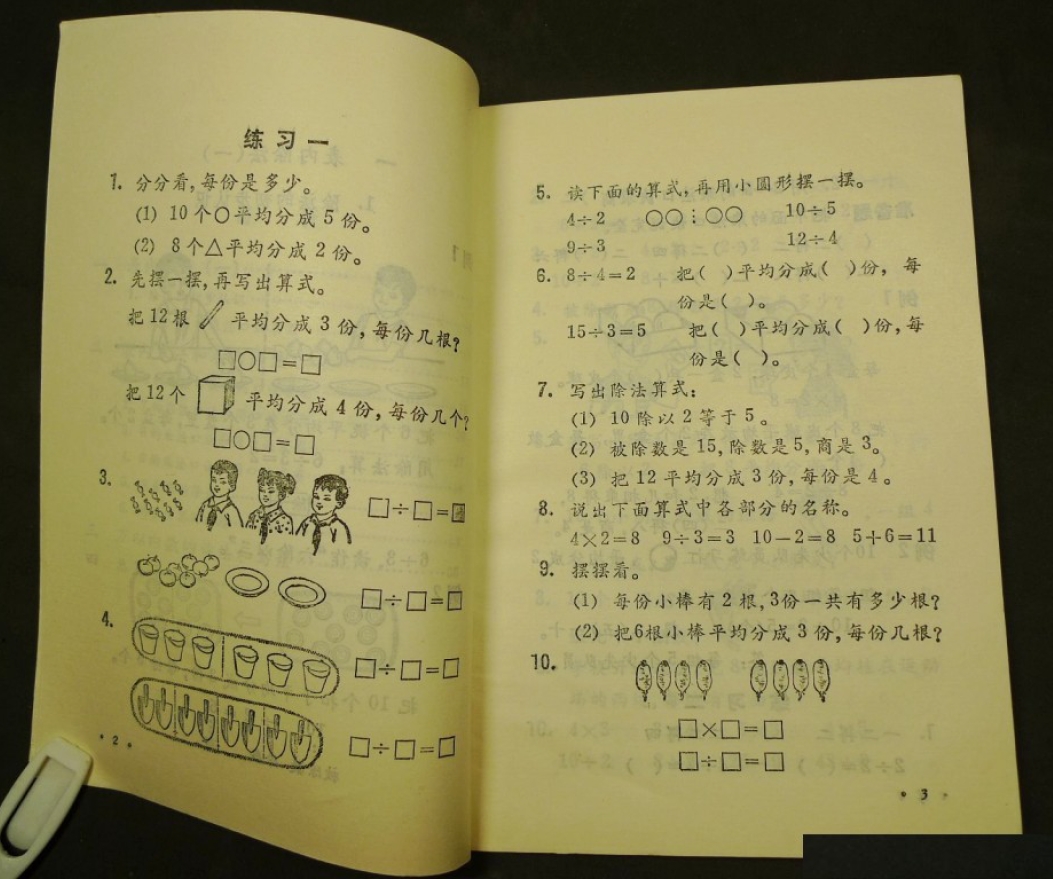 练习一
1. 分分看,每份是多少。
(1) 10个○平均分成5份。
(2) 8个△平均分成2份。
2. 先摆一摆,再写出算式。
把12根 平均分成3份,每份几根?
□○□=□
把12个 平均分成4份,每份几个?
□○□=□
3.
□÷□=□
□÷□=□
4.
□÷□=□
□÷□=□
·2·
5. 读下面的算式,再用小圆形摆一摆。
4÷2 ○○⋮○○ 10÷5
9÷3 12÷4
6. 8÷4=2 把( )平均分成( )份, 每
份是( )。
15÷3=5 把( )平均分成( )份,每
份是( )。
7. 写出除法算式:
(1) 10除以2等于5。
(2) 被除数是15,除数是5,商是3。
(3) 把12平均分成3份,每份是4。
8. 说出下面算式中各部分的名称。
4×2=8 9÷3=3 10-2=8 5+6=11
9. 摆摆看。
(1) 每份小棒有2根,3份一共有多少根?
(2) 把6根小棒平均分成3份,每份几根?
10.
□×□=□
□÷□=□
·3·